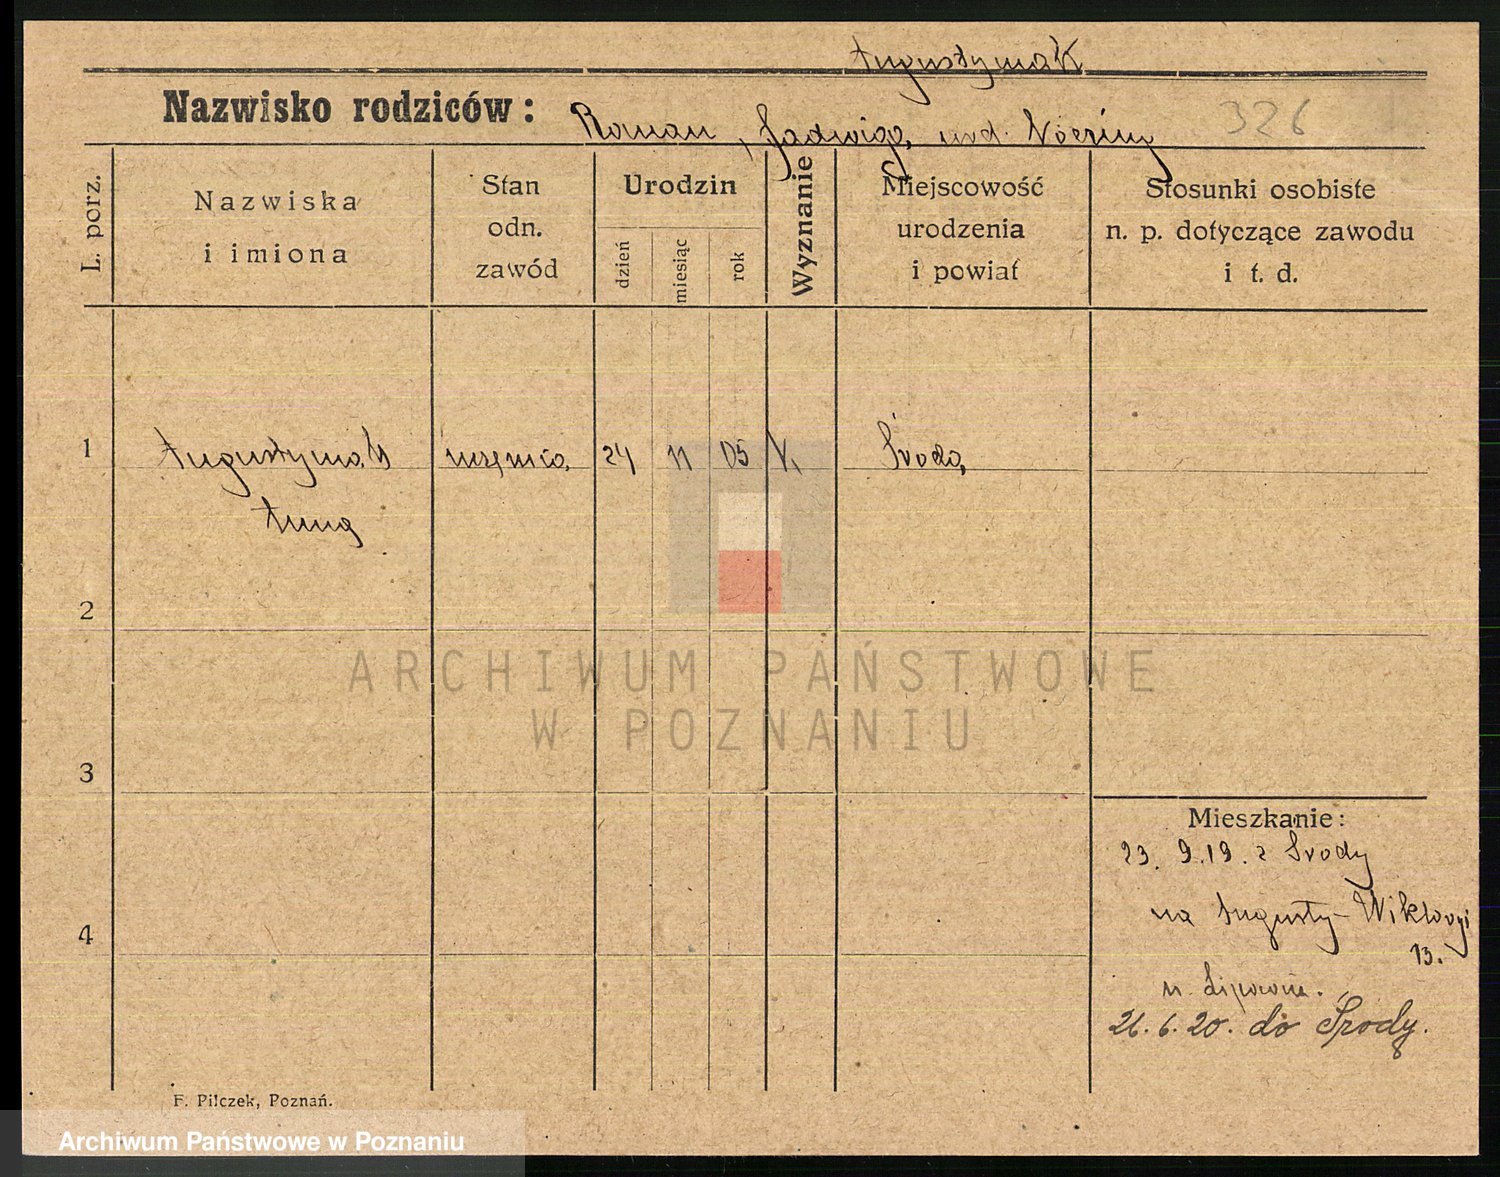 Augustyniak
Nazwisko rodziców: Roman, Jadwiga, urod.
326
L. porz.
Nazwiska
i imiona
Stan
odn.
zawód
Urodzin
dzień
miesiąc
rok
Wyznanie
Miejscowość
urodzenia
i powiat
Stosunki osobiste
n. p. dotyczące zawodu
i t. d.
1 Augustyniak uczenica 24 11 05 k. Środa
Anna
2
3
4
ARCHIWUM PAŃSTWOWE
W POZNANIU
Mieszkanie:
23. 9. 19. z Środy
na Augusty- Wiktoryi
13.
26. 6. 20. do Środy.
F. Pilczek, Poznań.
Archiwum Państwowe w Poznaniu